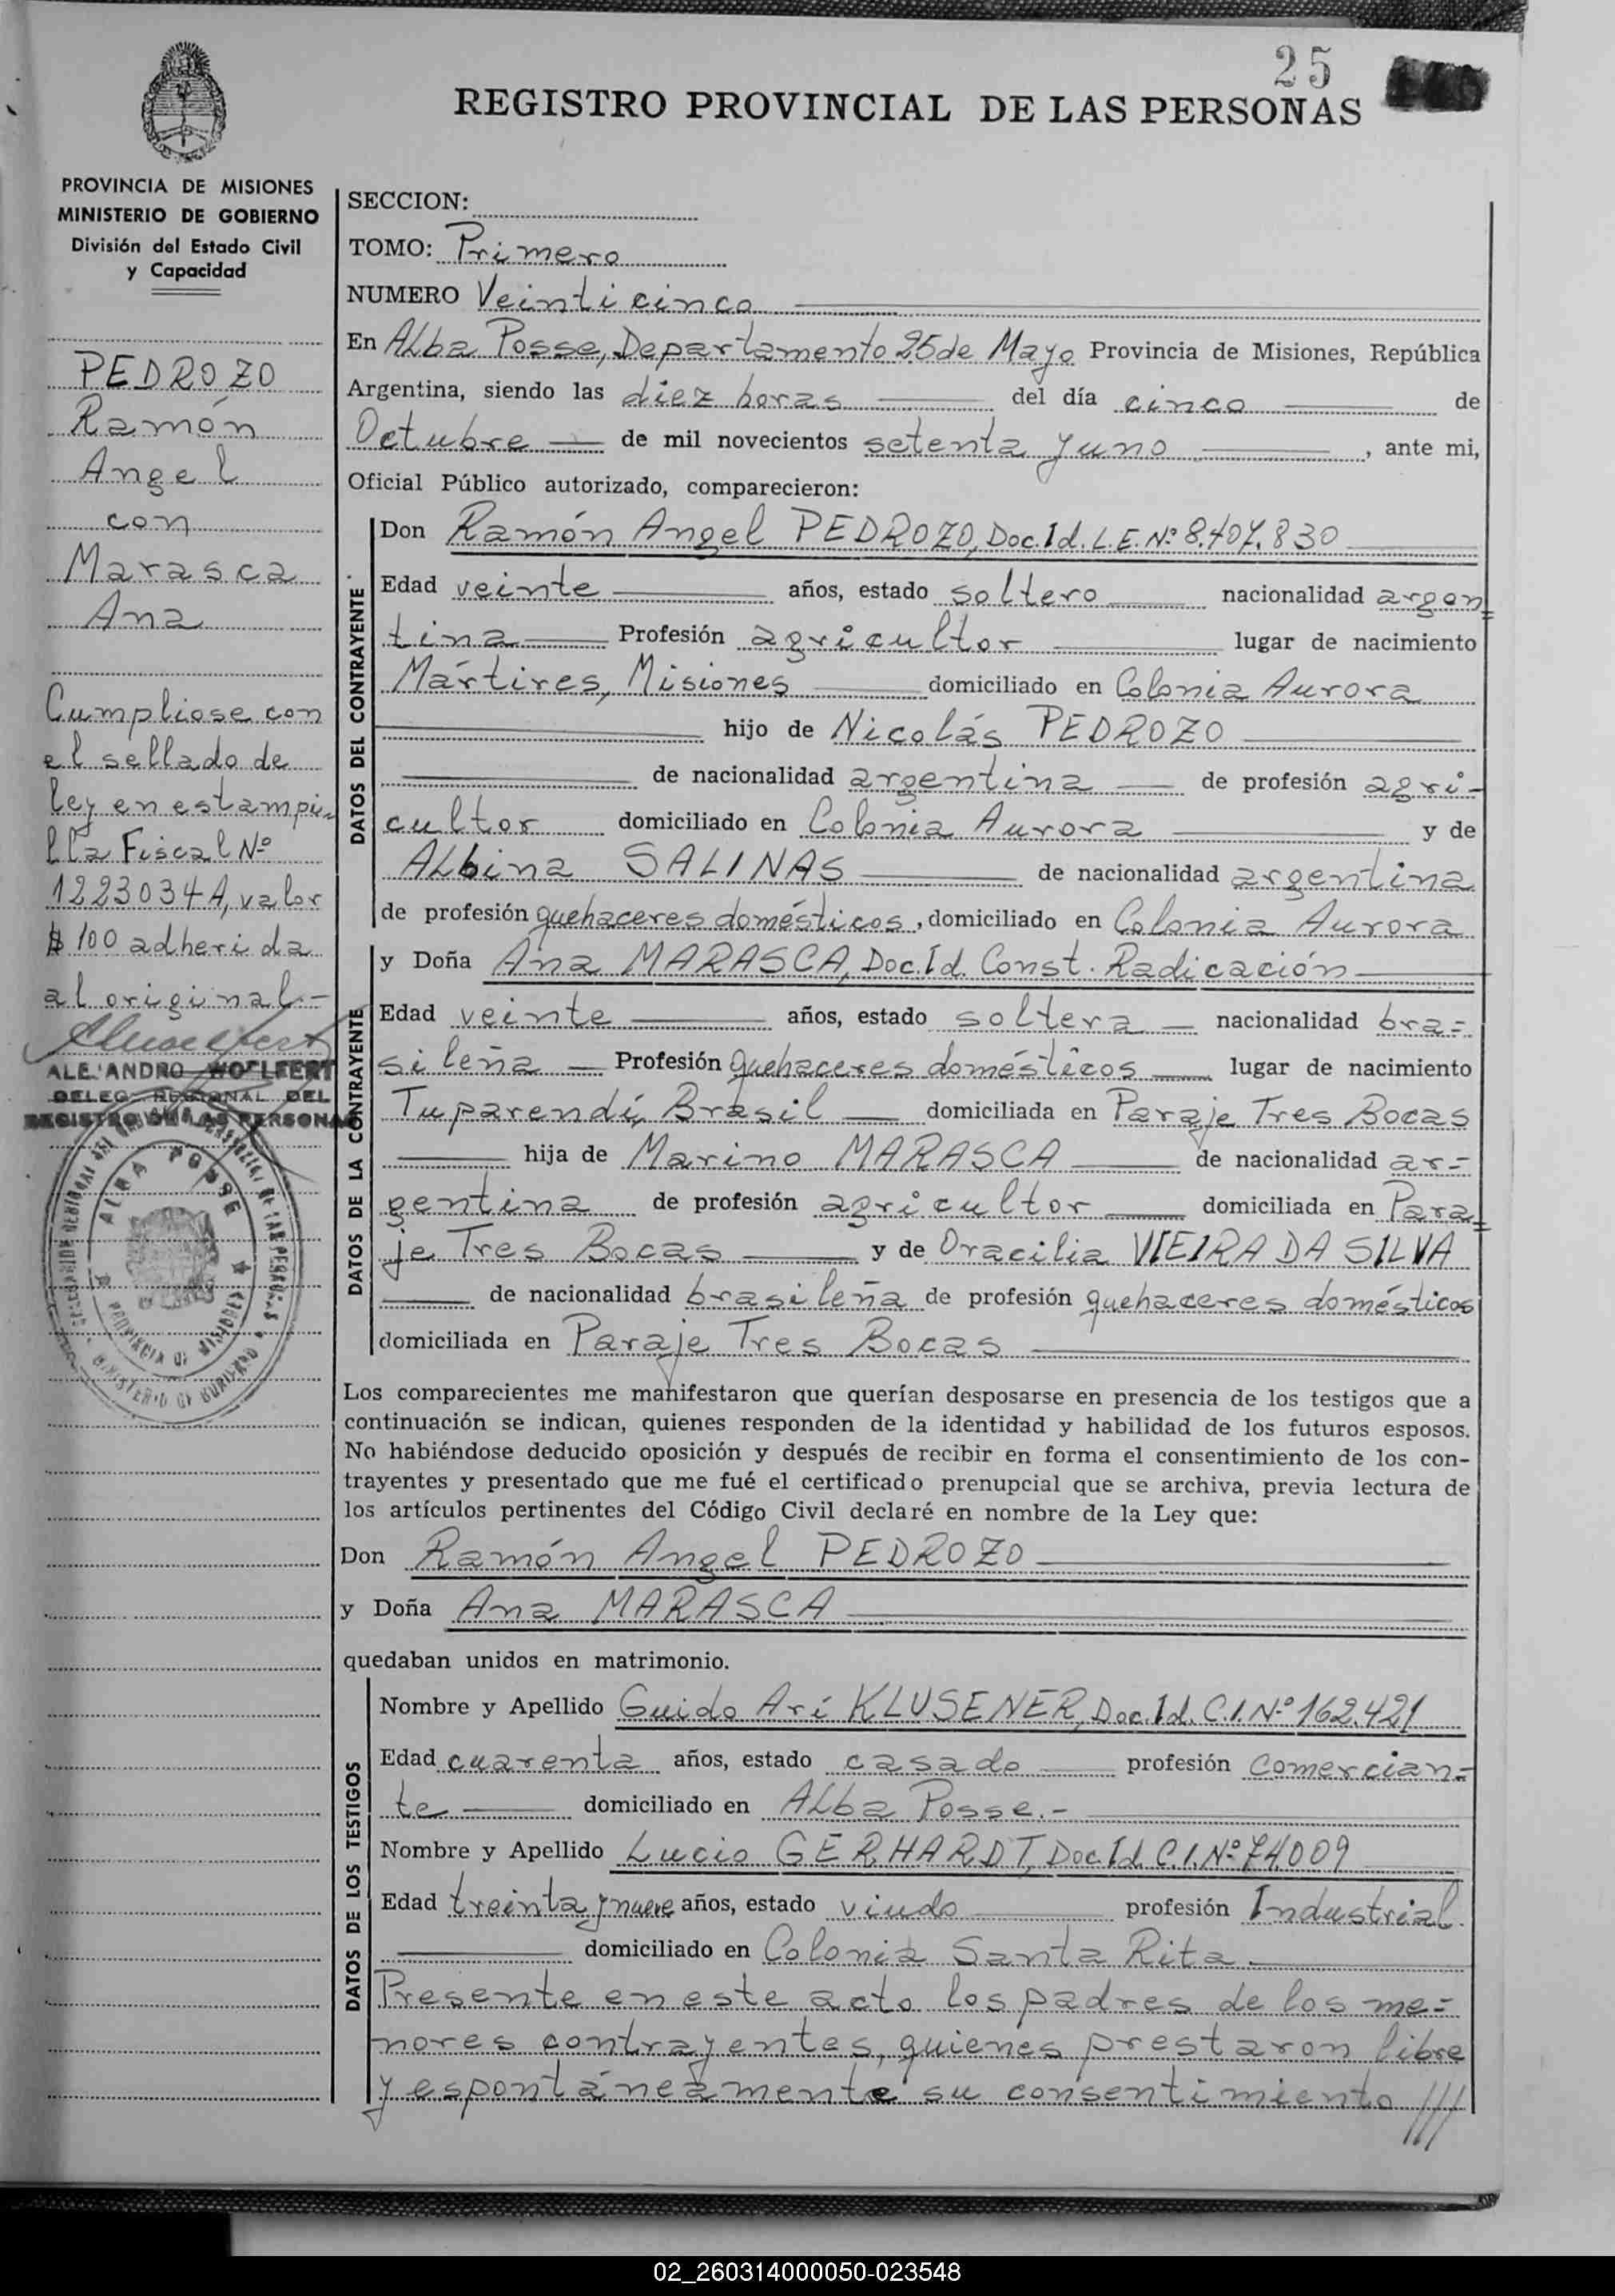 25
REGISTRO PROVINCIAL DE LAS PERSONAS
PROVINCIA DE MISIONES
MINISTERIO DE GOBIERNO
División del Estado Civil
y Capacidad
PEDROZO
Ramón
Angel
con
Marasca
Ana
Cumpliose con
el sellado de
ley en estampi-
lla Fiscal Nº
1223034A, valor
$ 100 adherida
al original.-
ALEJANDRO WOELFERT
DELEG. REGIONAL DEL
REGISTRO DE LAS PERSONAS
ALBA POSSE
PROVINCIA DE MISIONES
MINISTERIO DE GOBIERNO
SECCION:
TOMO: Primero
NUMERO Veinticinco
En Alba Posse, Departamento 25 de Mayo Provincia de Misiones, República
Argentina, siendo las diez horas del día cinco de
Octubre de mil novecientos setenta y uno, ante mi,
Oficial Público autorizado, comparecieron:
DATOS DEL CONTRAYENTE
Don Ramón Angel PEDROZO, Doc. Id. L.E. Nº 8.407.830
Edad veinte años, estado soltero nacionalidad argen=
tina Profesión agricultor lugar de nacimiento
Mártires, Misiones domiciliado en Colonia Aurora
hijo de Nicolás PEDROZO
de nacionalidad argentina de profesión agri-
cultor domiciliado en Colonia Aurora y de
Albina SALINAS de nacionalidad argentina
de profesión quehaceres domésticos, domiciliado en Colonia Aurora
DATOS DE LA CONTRAYENTE
y Doña Ana MARASCA, Doc. Id. Const. Radicación
Edad veinte años, estado soltera nacionalidad bra=
sileña Profesión quehaceres domésticos lugar de nacimiento
Tuparendí, Brasil domiciliada en Paraje Tres Bocas
hija de Marino MARASCA de nacionalidad ar=
gentina de profesión agricultor domiciliada en Para=
je Tres Bocas y de Oracilia VIEIRA DA SILVA
de nacionalidad brasileña de profesión quehaceres domésticos
domiciliada en Paraje Tres Bocas
Los comparecientes me manifestaron que querían desposarse en presencia de los testigos que a
continuación se indican, quienes responden de la identidad y habilidad de los futuros esposos.
No habiéndose deducido oposición y después de recibir en forma el consentimiento de los con-
trayentes y presentado que me fué el certificado prenupcial que se archiva, previa lectura de
los artículos pertinentes del Código Civil declaré en nombre de la Ley que:
Don Ramón Angel PEDROZO
y Doña Ana MARASCA
quedaban unidos en matrimonio.
DATOS DE LOS TESTIGOS
Nombre y Apellido Guido Arí KLUSENER, Doc. Id. C.I. Nº 162.421
Edad cuarenta años, estado casado profesión Comercian=
te domiciliado en Alba Posse.-
Nombre y Apellido Lucio GERHARDT, Doc. Id. C.I. Nº 74.009
Edad treinta y nueve años, estado viudo profesión Industrial.
domiciliado en Colonia Santa Rita.
Presente en este acto los padres de los me=
nores contrayentes, quienes prestaron libre
y espontáneamente su consentimiento ///
02_260314000050-023548